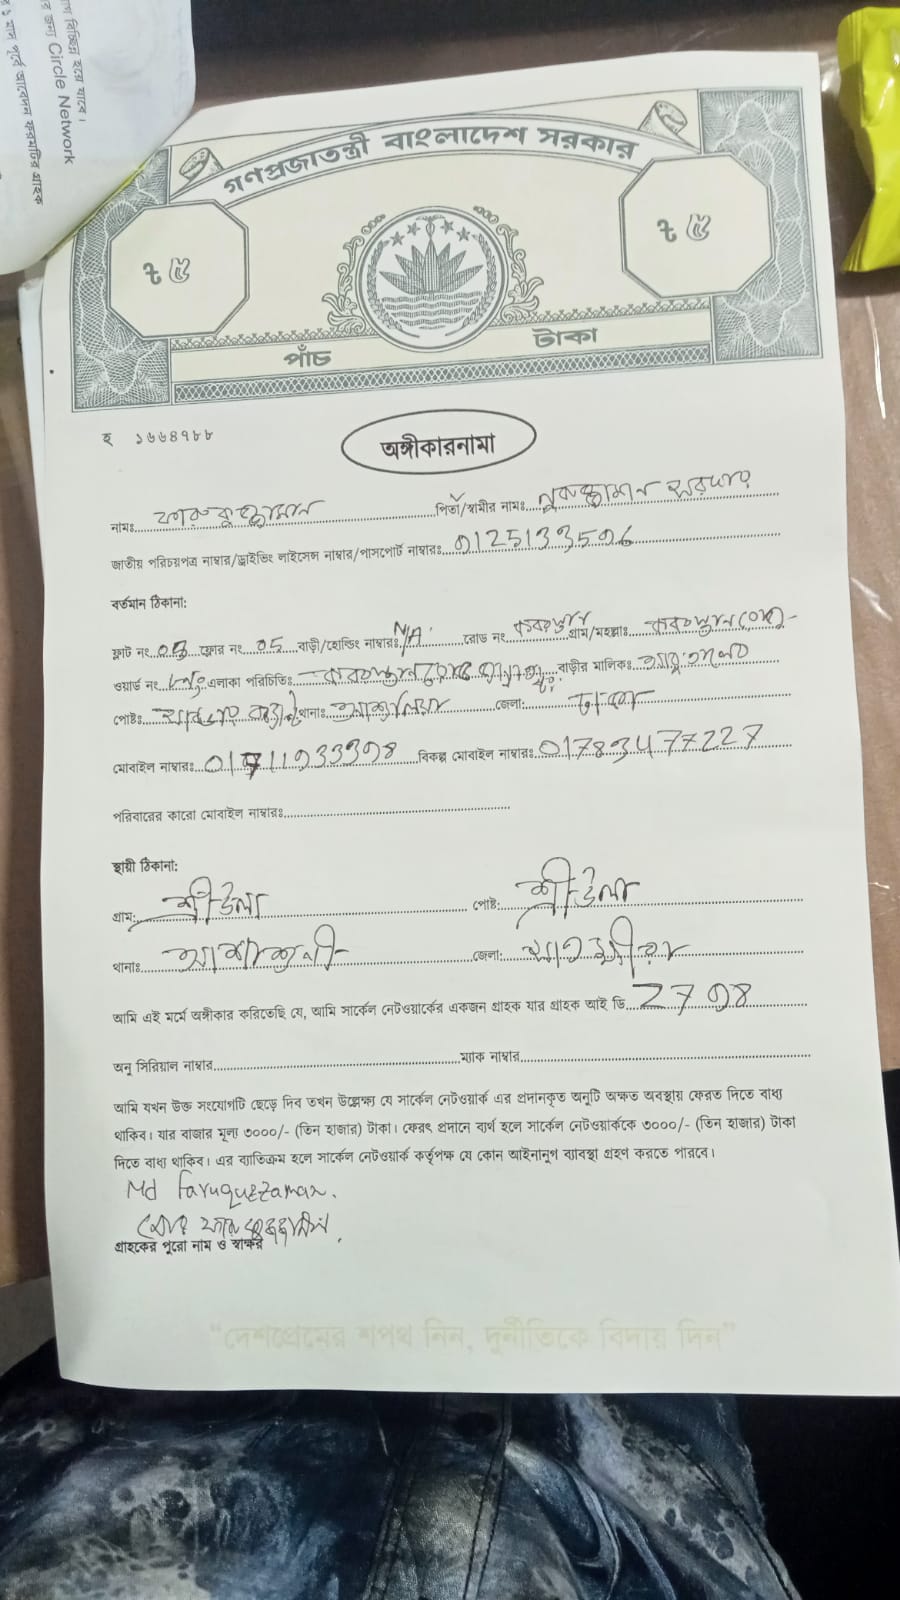 াণ বিচ্ছিন্ন হয়ে যাবে।
র জন্য Circle Network
র ১ মাস পূর্বে আবেদন ফরমটির গ্রাহক
গণপ্রজাতন্ত্রী বাংলাদেশ সরকার
৳ ৫
৳ ৫
পাঁচ টাকা
হ ১৬৬৪৭৮৮
অঙ্গীকারনামা
নামঃ ফারুকুজ্জামান পিতা/স্বামীর নামঃ নুরুজ্জামান সরদার
জাতীয় পরিচয়পত্র নাম্বার/ড্রাইভিং লাইসেন্স নাম্বার/পাসপোর্ট নাম্বারঃ
বর্তমান ঠিকানা:
ফ্লাট নং ফ্লোর নং 05 বাড়ী/হোল্ডিং নাম্বারঃ N/A রোড নং কবরস্থান গ্রাম/মহল্লাঃ কবরস্থান রোড
ওয়ার্ড নং এলাকা পরিচিতিঃ কবরস্থান রোড বাড়ীর মালিকঃ
পোষ্টঃ থানাঃ আশুলিয়া জেলা: ঢাকা
মোবাইল নাম্বারঃ বিকল্প মোবাইল নাম্বারঃ 01783477227
পরিবারের কারো মোবাইল নাম্বারঃ
স্থায়ী ঠিকানা:
গ্রাম: শ্রীউলা পোষ্ট: শ্রীউলা
থানাঃ আশাশুনী জেলা: সাতক্ষীরা
আমি এই মর্মে অঙ্গীকার করিতেছি যে, আমি সার্কেল নেটওয়ার্কের একজন গ্রাহক যার গ্রাহক আই ডি
অনু সিরিয়াল নাম্বার ম্যাক নাম্বার
আমি যখন উক্ত সংযোগটি ছেড়ে দিব তখন উল্লেখ্য যে সার্কেল নেটওয়ার্ক এর প্রদানকৃত অনুটি অক্ষত অবস্থায় ফেরত দিতে বাধ্য
থাকিব। যার বাজার মূল্য ৩০০০/- (তিন হাজার) টাকা। ফেরৎ প্রদানে ব্যর্থ হলে সার্কেল নেটওয়ার্ককে ৩০০০/- (তিন হাজার) টাকা
দিতে বাধ্য থাকিব। এর ব্যতিক্রম হলে সার্কেল নেটওয়ার্ক কর্তৃপক্ষ যে কোন আইনানুগ ব্যবস্থা গ্রহণ করতে পারবে।
Md Faruquzzaman.
মোঃ ফারুকুজ্জামান
গ্রাহকের পুরো নাম ও স্বাক্ষর
“দেশপ্রেমের শপথ নিন, দুর্নীতিকে বিদায় দিন”